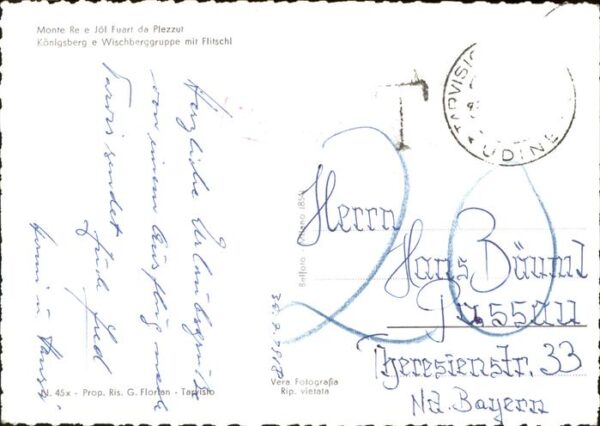 Monte Re e Jôf Fuart da Plezzut
Königsberg e Wischberggruppe mit Flitschl
Herzliche Urlaubsgrüße
von einem Ausflug nach
Tarvis sendet
T
TARVISIO
UDINE
20
Herrn
Hans Bäuml
Passau
Theresienstr. 33
Nd. Bayern
N. 45x - Prop. Ris. G. Florian - Tarvisio
Vera Fotografia
Rip. vietata